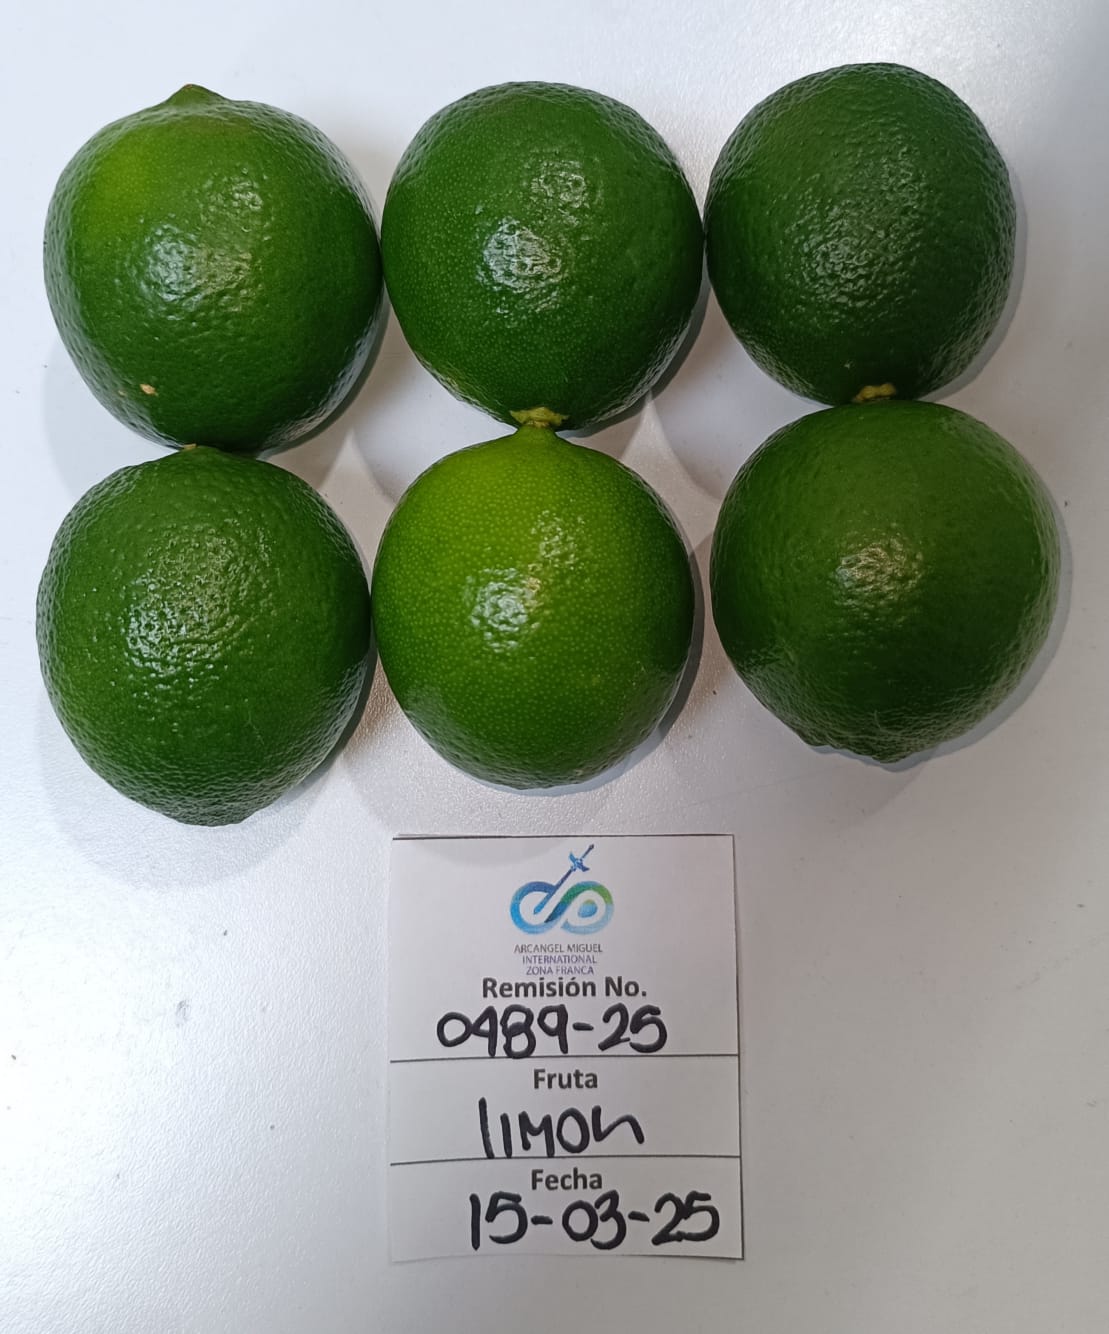 ARCANGEL MIGUEL
INTERNATIONAL
ZONA FRANCA
Remisión No.
0489-25
Fruta
lIMON
Fecha
15-03-25